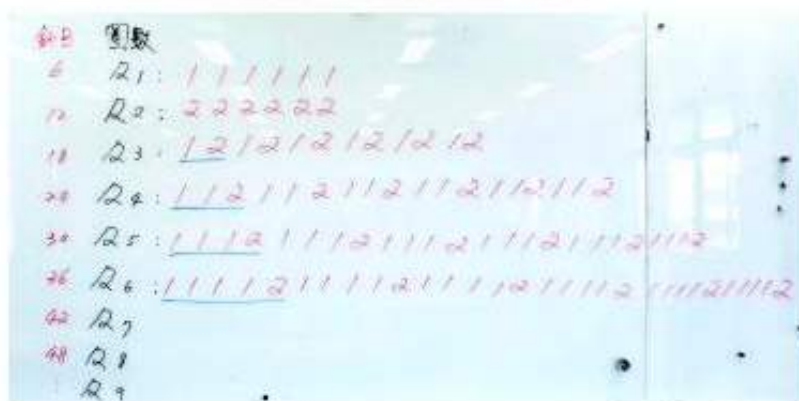 圈數
6 R1: 1 1 1 1 1 1
12 R2: 2 2 2 2 2 2
18 R3: 1 2 1 2 1 2 1 2 1 2 1 2
24 R4: 1 1 2 1 1 2 1 1 2 1 1 2 1 1 2 1 1 2
30 R5: 1 1 1 2 1 1 1 2 1 1 1 2 1 1 1 2 1 1 1 2 1 1 1 2
36 R6: 1 1 1 1 2 1 1 1 1 2 1 1 1 1 2 1 1 1 1 2 1 1 1 1 2 1 1 1 1 2
42 R7
48 R8
R9